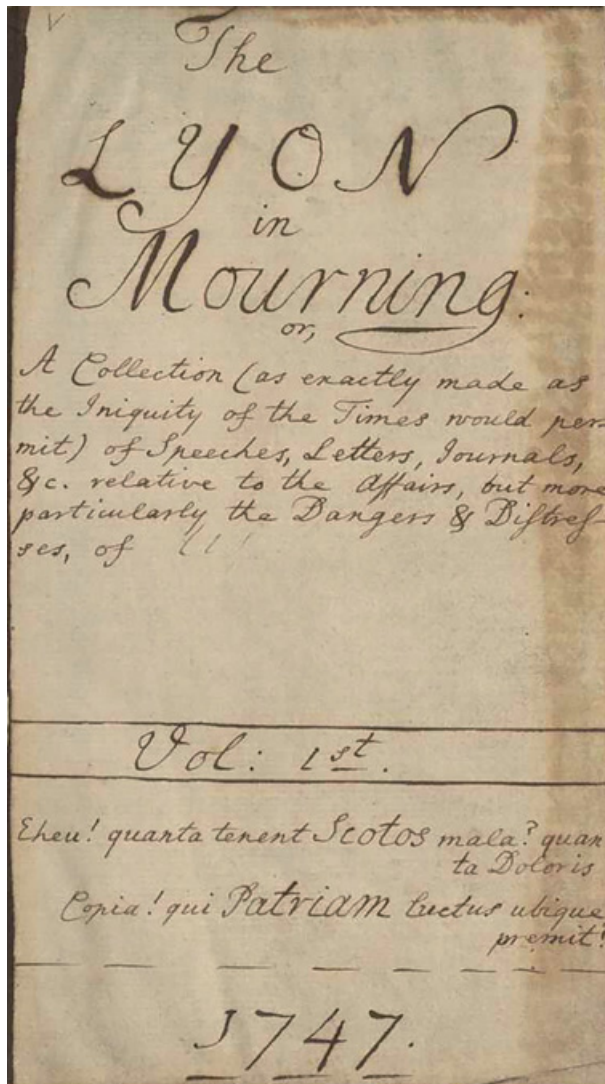 The
LYON
in
Mourning:
or,
A Collection (as exactly made as
the Iniquity of the Times would per
mit) of Speeches, Letters, Journals,
&c. relative to the Affairs, but more
particularly the Dangers & Distreſ-
ses, of
Vol: 1st.
Eheu! quanta tenent Scotos mala? quan
ta Doloris
Copia! qui Patriam luctus ubique
premit?
1747.